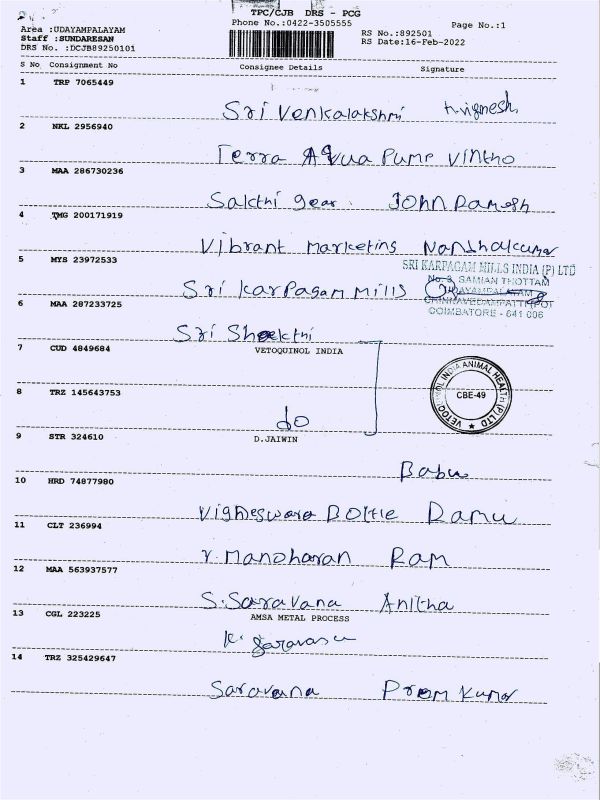 TPC/CJB DRS - PCG
Area :UDAYAMPALAYAM Phone No.:0422-3505555 Page No.:1
Staff :SUNDARESAN RS No.:892501
DRS No. :DCJB89250101 RS Date:16-Feb-2022
S No Consignment No Consignee Details Signature
1 TRP 7065449
Sri Venkalakshmi
2 NKL 2956940
Terra Aqua Pump
3 MAA 286730236
Sakthi gear. John
4 TMG 200171919
Vibrant Marketing Nandhakumar
5 MYS 23972533
SRI KARPAGAM MILLS INDIA (P) LTD
Sri Karpagam Mills
No. SAMIAN THOTTAM
UDAYAMPALAYAM
CHINNAVEDAMPATTI (PO)
COIMBATORE - 641 006
6 MAA 287233725
Sri
7 CUD 4849684 VETOQUINOL INDIA
8 TRZ 145643753
VETOQUINOL INDIA ANIMAL HEALTH (P) LTD
CBE-49
do
9 STR 324610 D.JAIWIN
Babu
10 HRD 74877980
Vigneswara Bottle Ramu
11 CLT 236994
V. Manoharan Ram
12 MAA 563937577
S. Saravana Anitha
13 CGL 223225 AMSA METAL PROCESS
K.
14 TRZ 325429647
Saravana Prem Kumar